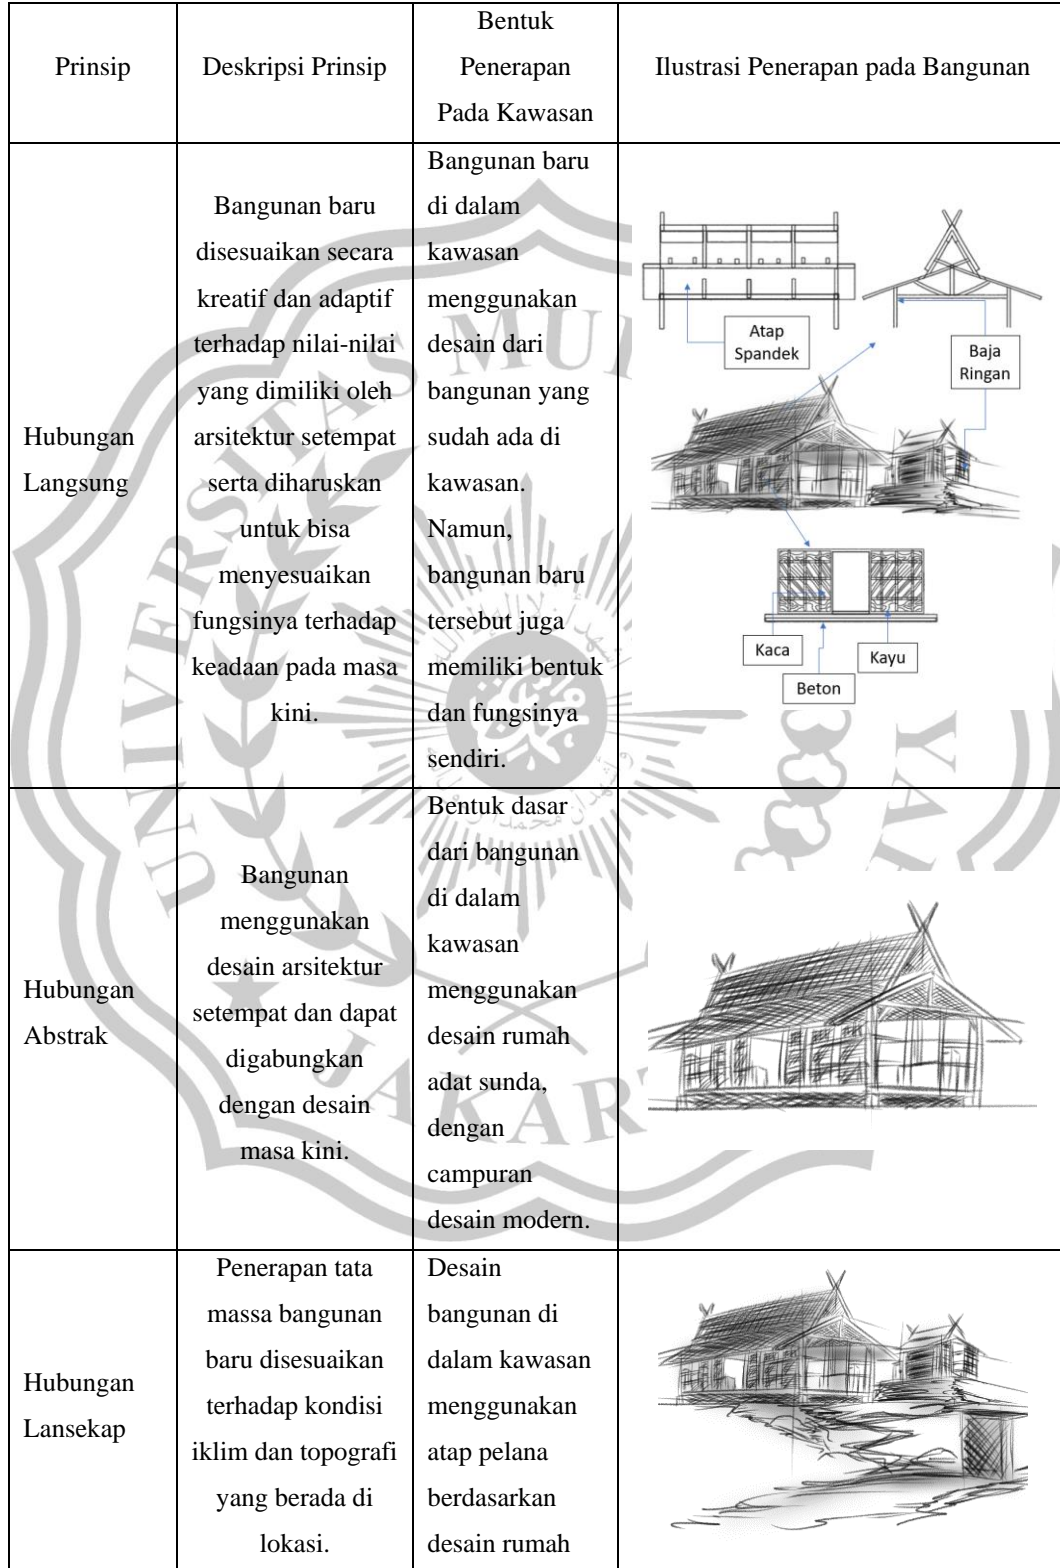 Prinsip
Deskripsi Prinsip
Bentuk
Penerapan
Pada Kawasan
Ilustrasi Penerapan pada Bangunan
Hubungan
Langsung
Bangunan baru
disesuaikan secara
kreatif dan adaptif
terhadap nilai-nilai
yang dimiliki oleh
arsitektur setempat
serta diharuskan
untuk bisa
menyesuaikan
fungsinya terhadap
keadaan pada masa
kini.
Bangunan baru
di dalam
kawasan
menggunakan
desain dari
bangunan yang
sudah ada di
kawasan.
Namun,
bangunan baru
tersebut juga
memiliki bentuk
dan fungsinya
sendiri.
Atap
Spandek
Baja
Ringan
Kaca
Kayu
Beton
Hubungan
Abstrak
Bangunan
menggunakan
desain arsitektur
setempat dan dapat
digabungkan
dengan desain
masa kini.
Bentuk dasar
dari bangunan
di dalam
kawasan
menggunakan
desain rumah
adat sunda,
dengan
campuran
desain modern.
Hubungan
Lansekap
Penerapan tata
massa bangunan
baru disesuaikan
terhadap kondisi
iklim dan topografi
yang berada di
lokasi.
Desain
bangunan di
dalam kawasan
menggunakan
atap pelana
berdasarkan
desain rumah
UNIVERSITAS MU
YA
JAKART